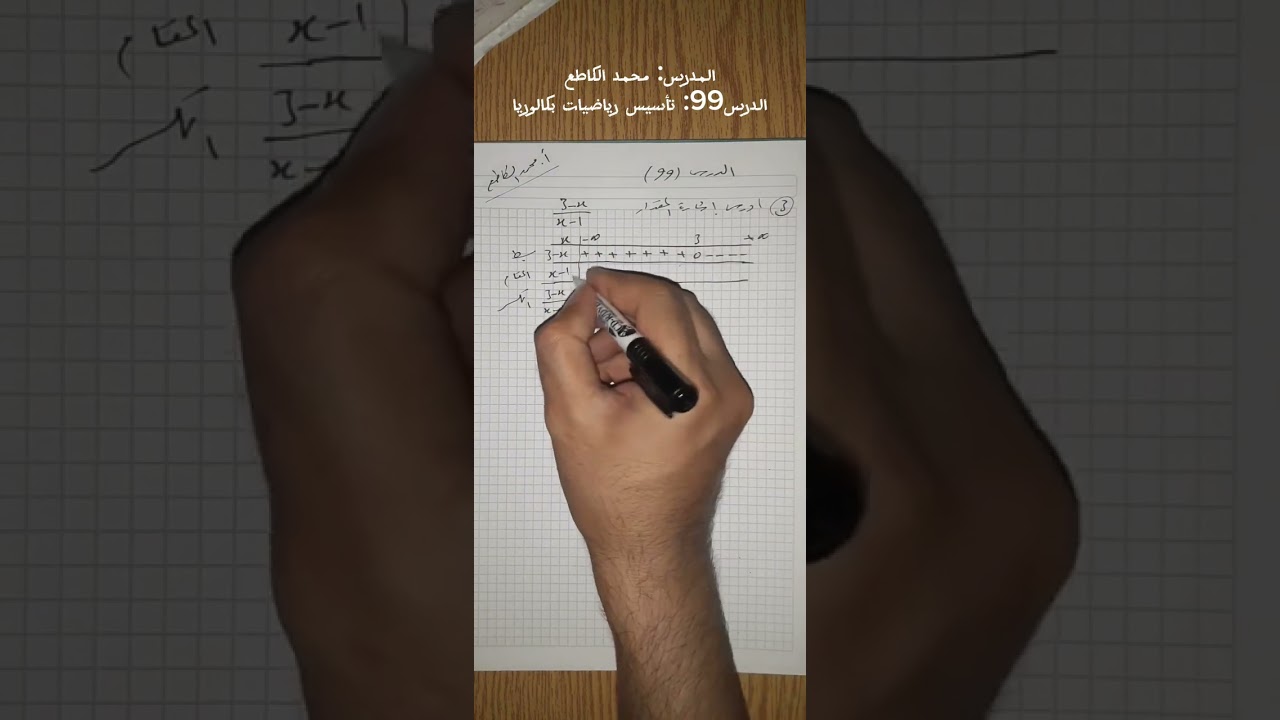 المدرس: محمد الكاطع
الدرس99: تأسيس رياضيات بكالوريا
أ. محمد الكاطع
الدرس (99)
③ ادرس إشارة المقدار 3-x / x-1
x -∞ 3 +∞
بسط 3-x + + + + + + + 0 - - - -
المقام x-1
الكسر 3-x / x-